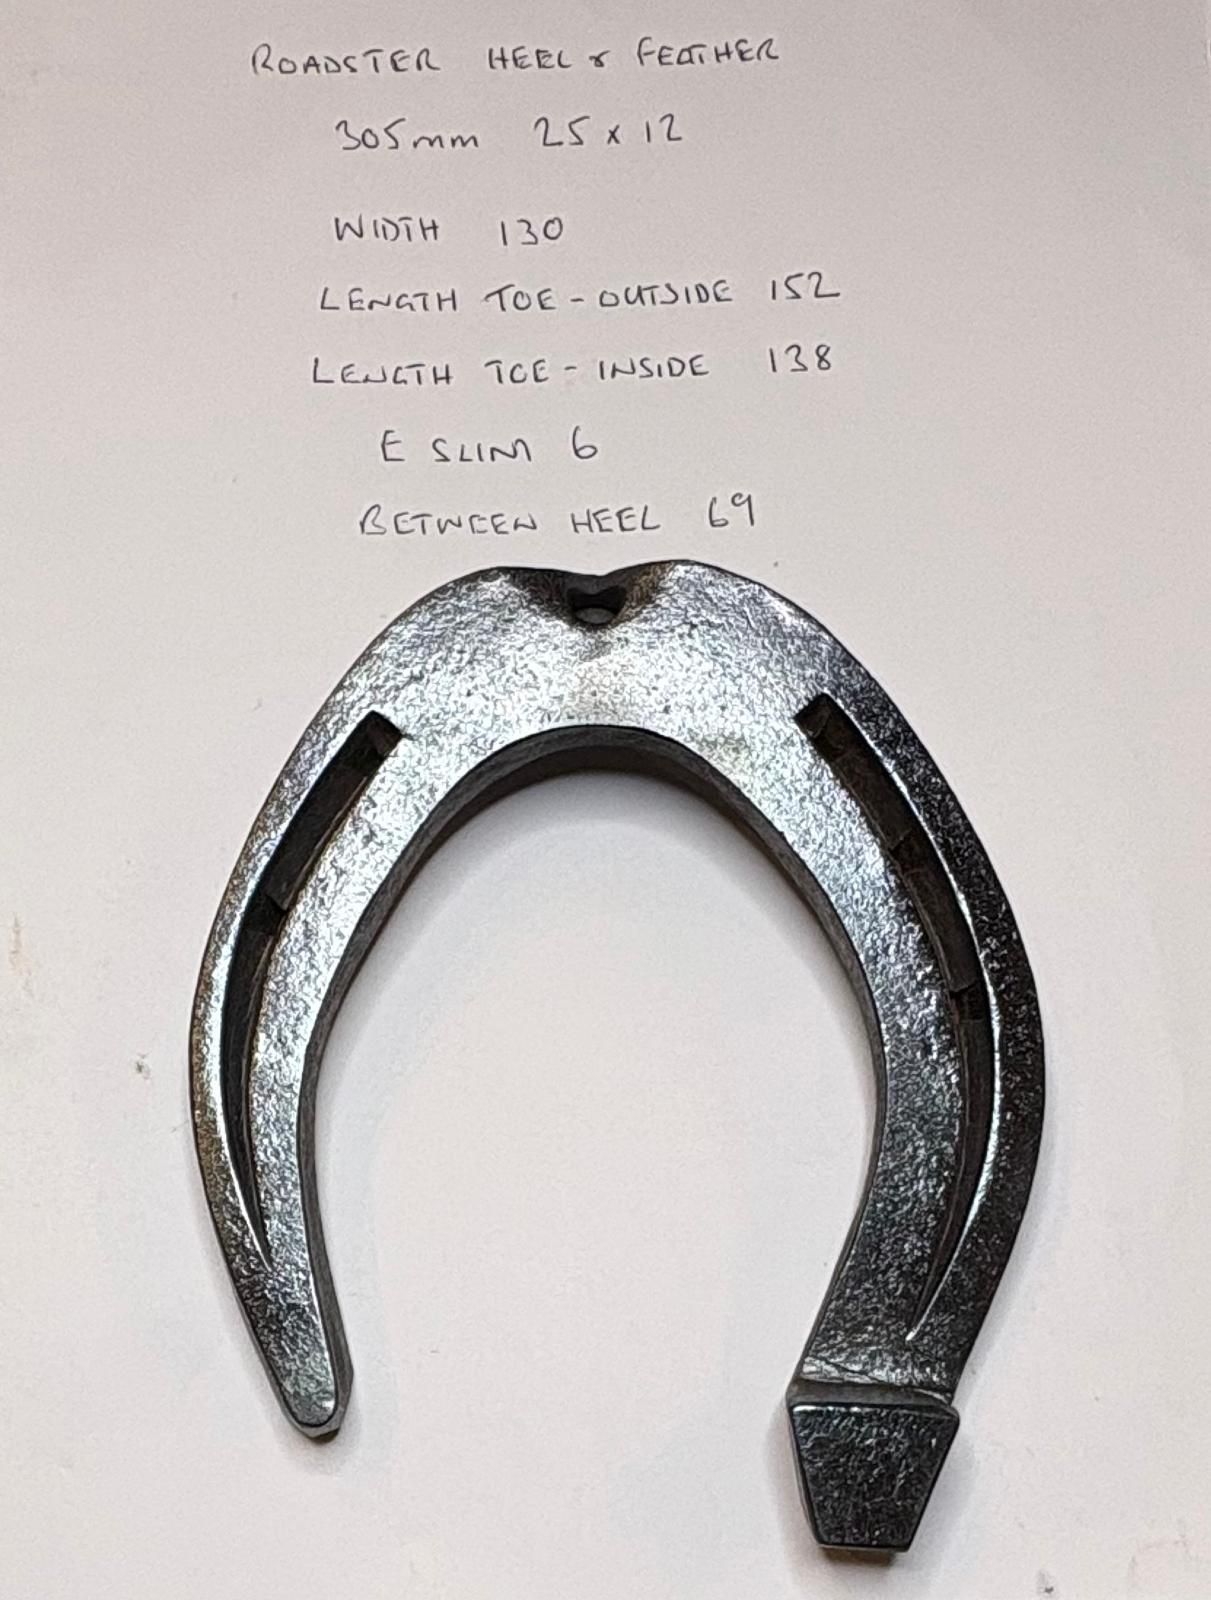 ROADSTER HEEL & FEATHER
305mm 25 x 12
WIDTH 130
LENGTH TOE - OUTSIDE 152
LENGTH TOE - INSIDE 138
E SLIM 6
BETWEEN HEEL 69